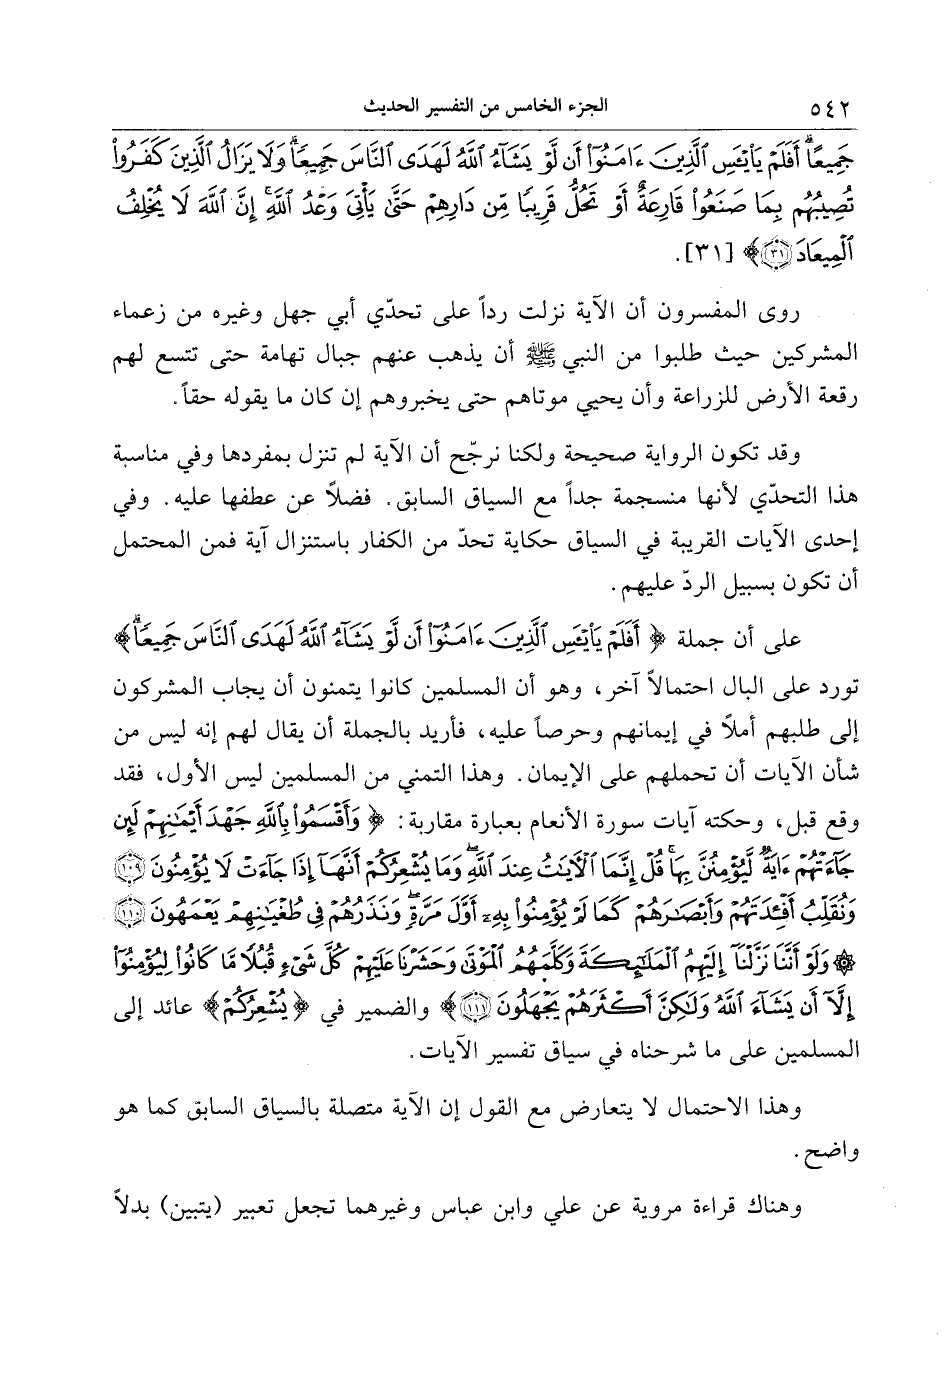 ٥٤٢ الجزء الخامس من التفسير الحديث
جَمِيعًاۗ أَفَلَمْ يَاْيْـَٔسِ ٱلَّذِينَ ءَامَنُوٓا۟ أَن لَّوْ يَشَآءُ ٱللَّهُ لَهَدَى ٱلنَّاسَ جَمِيعًاۗ وَلَا يَزَالُ ٱلَّذِينَ كَفَرُوا۟
تُصِيبُهُم بِمَا صَنَعُوا۟ قَارِعَةٌ أَوْ تَحُلُّ قَرِيبًا مِّن دَارِهِمْ حَتَّىٰ يَأْتِىَ وَعْدُ ٱللَّهِۚ إِنَّ ٱللَّهَ لَا يُخْلِفُ
ٱلْمِيعَادَ ٣١﴾ [٣١].
روى المفسرون أن الآية نزلت رداً على تحدّي أبي جهل وغيره من زعماء
المشركين حيث طلبوا من النبي ﷺ أن يذهب عنهم جبال تهامة حتى تتسع لهم
رقعة الأرض للزراعة وأن يحيي موتاهم حتى يخبروهم إن كان ما يقوله حقاً.
وقد تكون الرواية صحيحة ولكنا نرجّح أن الآية لم تنزل بمفردها وفي مناسبة
هذا التحدّي لأنها منسجمة جداً مع السياق السابق. فضلاً عن عطفها عليه. وفي
إحدى الآيات القريبة في السياق حكاية تحدّ من الكفار باستنزال آية فمن المحتمل
أن تكون بسبيل الردّ عليهم.
على أن جملة ﴿أَفَلَمْ يَاْيْـَٔسِ ٱلَّذِينَ ءَامَنُوٓا۟ أَن لَّوْ يَشَآءُ ٱللَّهُ لَهَدَى ٱلنَّاسَ جَمِيعًاۗ﴾
تورد على البال احتمالاً آخر، وهو أن المسلمين كانوا يتمنون أن يجاب المشركون
إلى طلبهم أملاً في إيمانهم وحرصاً عليه، فأريد بالجملة أن يقال لهم إنه ليس من
شأن الآيات أن تحملهم على الإيمان. وهذا التمني من المسلمين ليس الأول، فقد
وقع قبل، وحكته آيات سورة الأنعام بعبارة مقاربة: ﴿وَأَقْسَمُوا۟ بِٱللَّهِ جَهْدَ أَيْمَٰنِهِمْ لَئِن
جَآءَتْهُمْ ءَايَةٌ لَّيُؤْمِنُنَّ بِهَاۚ قُلْ إِنَّمَا ٱلْءَايَٰتُ عِندَ ٱللَّهِۖ وَمَا يُشْعِرُكُمْ أَنَّهَآ إِذَا جَآءَتْ لَا يُؤْمِنُونَ ١٠٩
وَنُقَلِّبُ أَفْـِٔدَتَهُمْ وَأَبْصَٰرَهُمْ كَمَا لَمْ يُؤْمِنُوا۟ بِهِۦٓ أَوَّلَ مَرَّةٍ وَنَذَرُهُمْ فِى طُغْيَٰنِهِمْ يَعْمَهُونَ ١١٠
۞ وَلَوْ أَنَّنَا نَزَّلْنَآ إِلَيْهِمُ ٱلْمَلَٰٓئِكَةَ وَكَلَّمَهُمُ ٱلْمَوْتَىٰ وَحَشَرْنَا عَلَيْهِمْ كُلَّ شَىْءٍ قُبُلًا مَّا كَانُوا۟ لِيُؤْمِنُوٓا۟
إِلَّآ أَن يَشَآءَ ٱللَّهُ وَلَٰكِنَّ أَكْثَرَهُمْ يَجْهَلُونَ ١١١﴾ والضمير في ﴿يُشْعِرُكُمْ﴾ عائد إلى
المسلمين على ما شرحناه في سياق تفسير الآيات.
وهذا الاحتمال لا يتعارض مع القول إن الآية متصلة بالسياق السابق كما هو
واضح.
وهناك قراءة مروية عن علي وابن عباس وغيرهما تجعل تعبير (يتبين) بدلاً